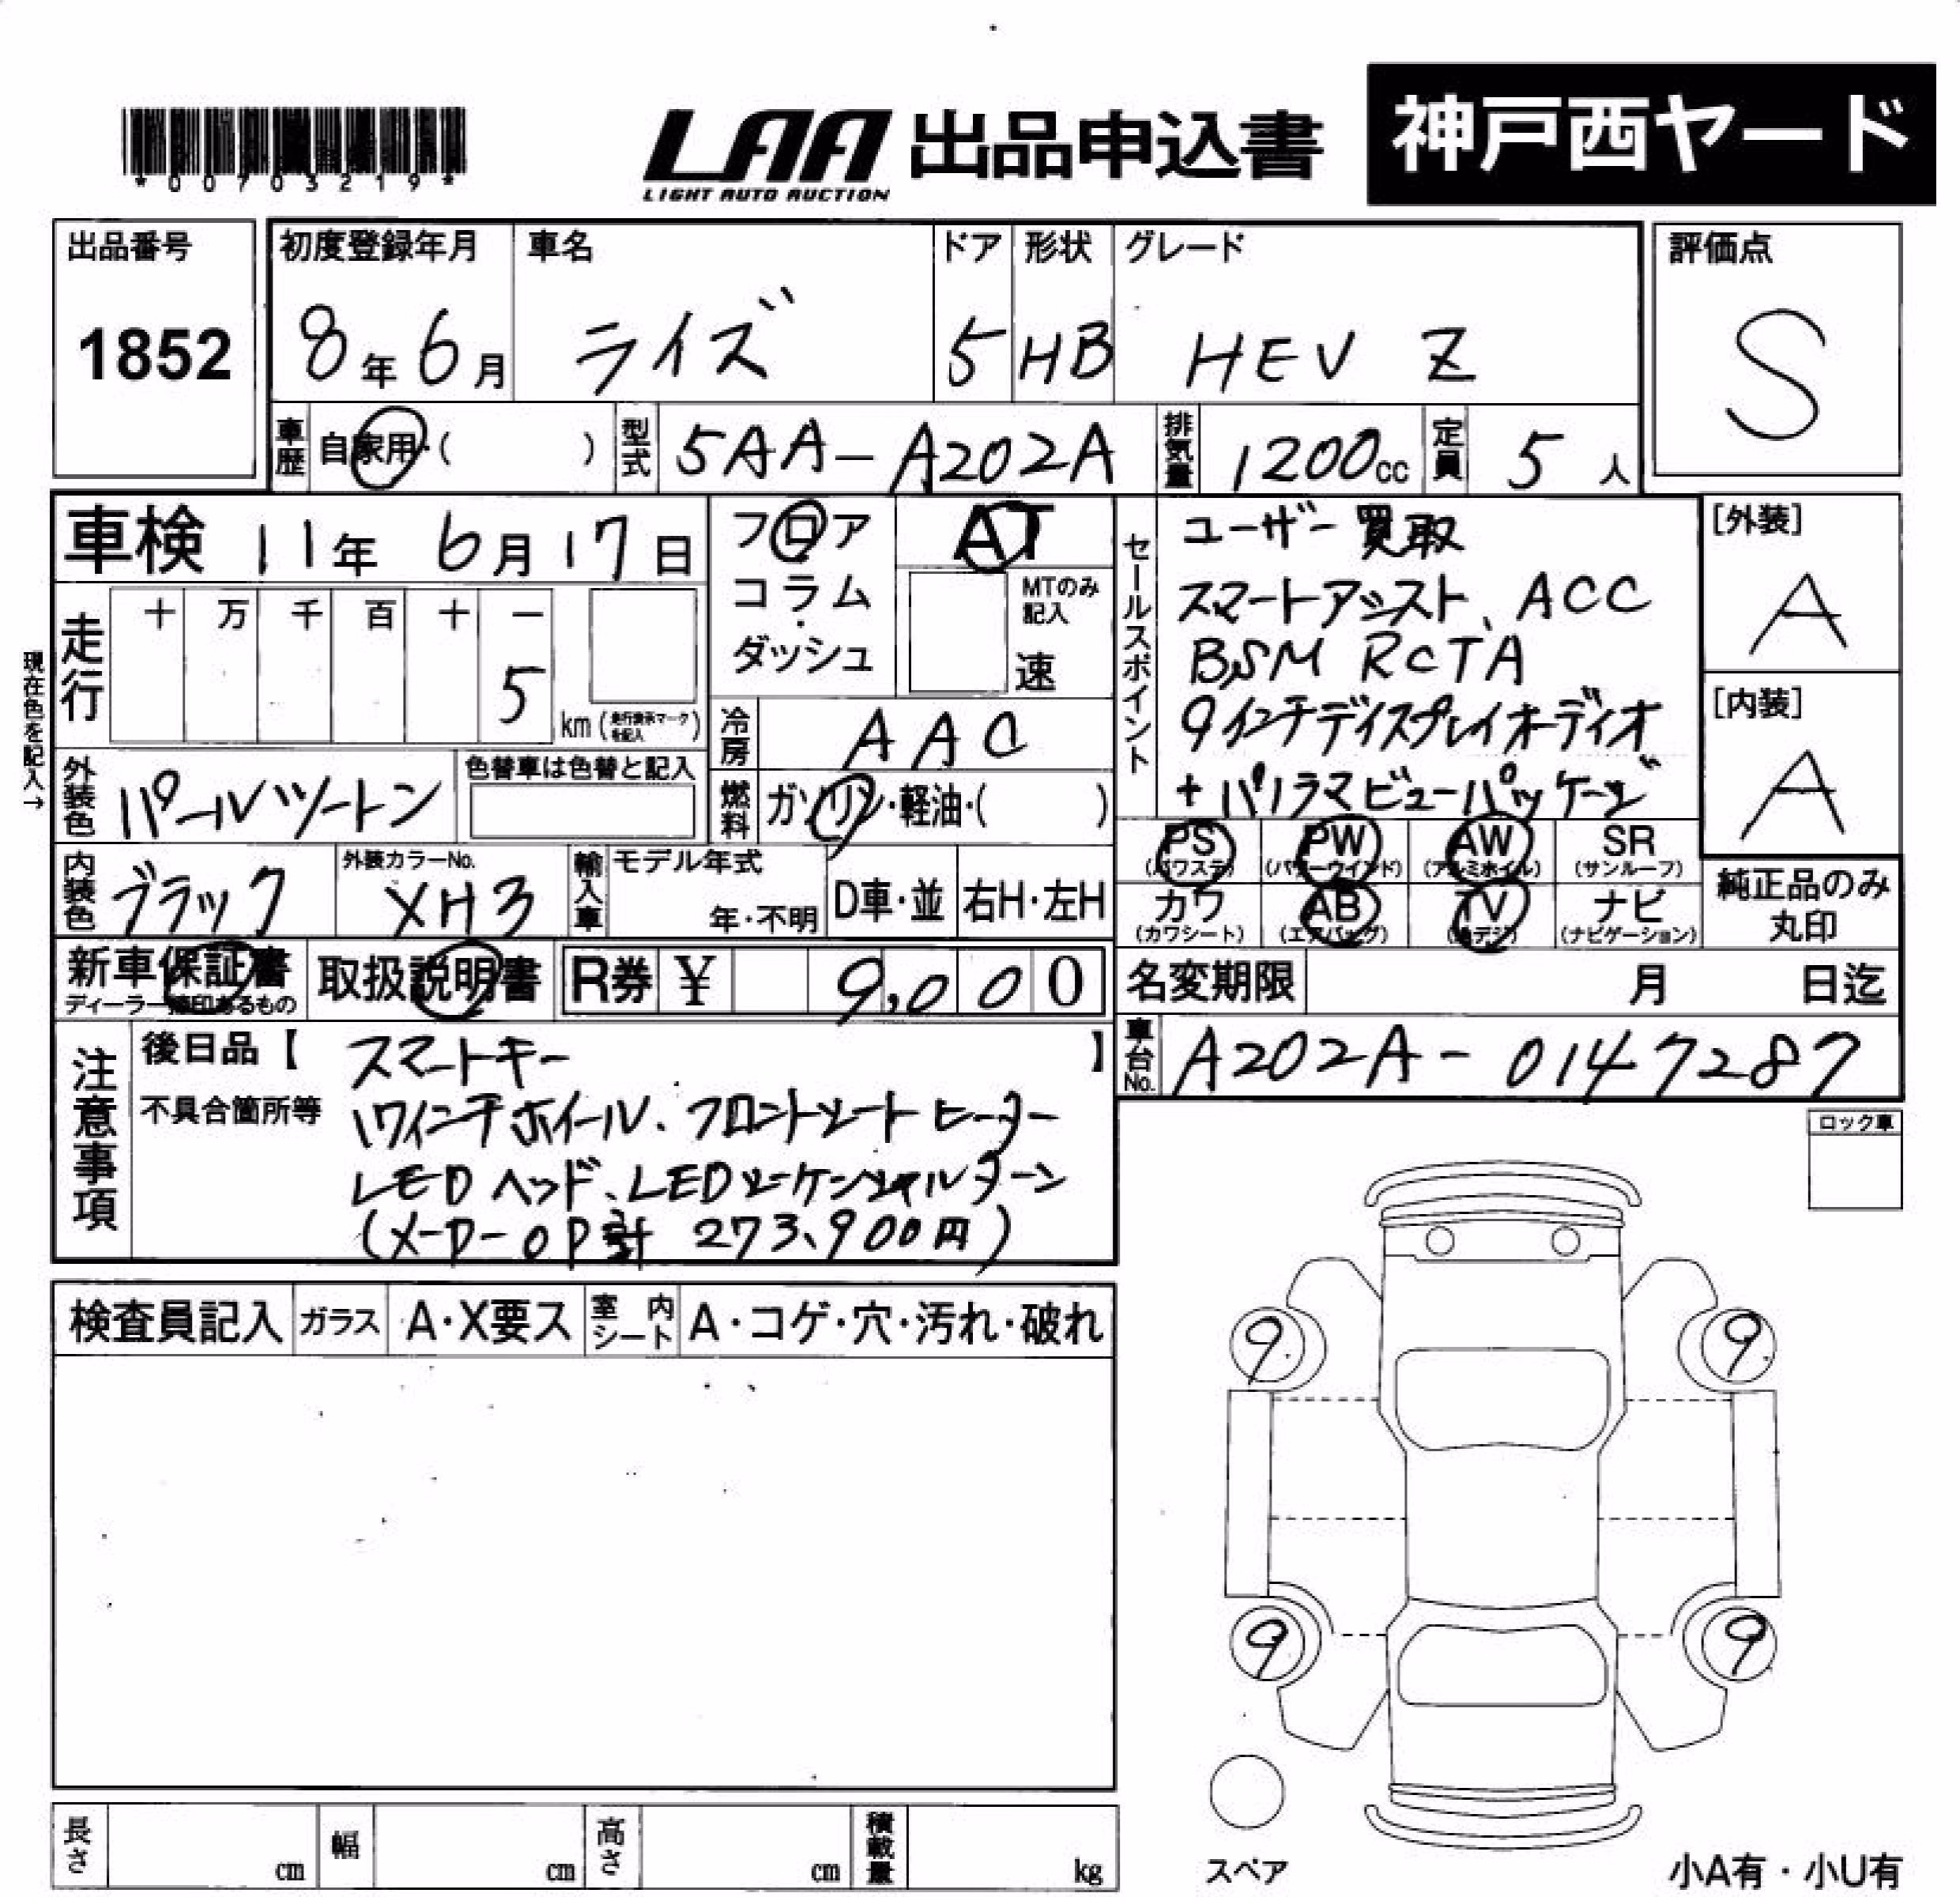 *00703219*
LAA 出品申込書
LIGHT AUTO AUCTION
神戸西ヤード
出品番号
1852
初度登録年月
8年6月
車名
ライズ
ドア
5
形状
HB
グレード
HEV Z
評価点
S
車歴 自家用・( )
型式 5AA-A202A
排気量 1200cc
定員 5人
車検 11年 6月17日
現在色を記入→
走行 十 万 千 百 十 一
5
km(走行表示マークを記入)
フロア・コラム・ダッシュ
AT
MTのみ記入
速
冷房 AAC
燃料 ガソリン・軽油・( )
外装色 パールツートン
色替車は色替と記入
内装色 ブラック
外装カラーNo.
XH3
輸入車 モデル年式
年・不明
D車・並 右H・左H
セールスポイント
ユーザー買取
スマートアシスト、ACC
BSM RCTA
9インチディスプレイオーディオ
+パノラマビューパッケージ
[外装]
A
[内装]
A
PS
(パワステ)
PW
(パワーウインド)
AW
(アルミホイル)
SR
(サンルーフ)
カワ
(カワシート)
AB
(エアバッグ)
TV
(地デジ)
ナビ
(ナビゲーション)
純正品のみ
丸印
新車保証書
ディーラー捺印あるもの
取扱説明書
R券 ¥ 9,000
名変期限 月 日迄
車台No. A202A-0147287
注意事項
後日品【 スマートキー 】
不具合箇所等 17インチホイール、フロントシートヒーター
LEDヘッド、LEDシーケンシャルターン
(メーカーOP計 273,900円)
ロック車
検査員記入 ガラス A・X要ス 室内シート A・コゲ・穴・汚れ・破れ
9 9
9 9
スペア
小A有・小U有
長さ cm 幅 cm 高さ cm 積載量 kg